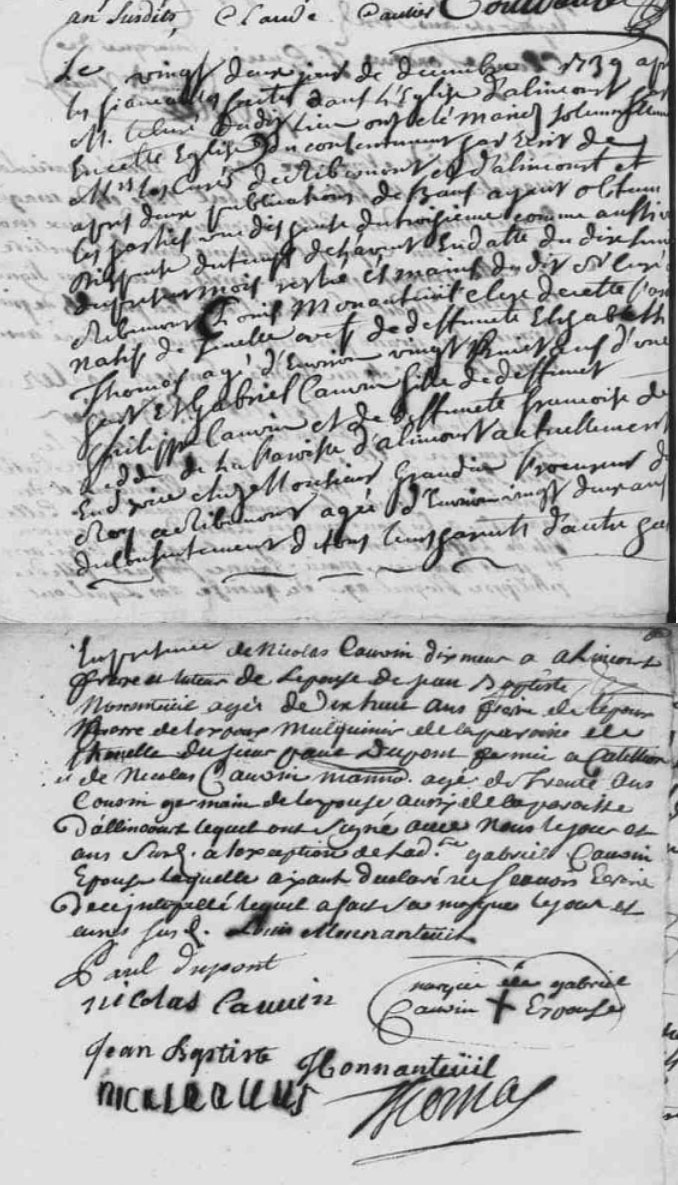 an susdits Claude Cautier
Le vingt deux jour de decembre 1739 apr
les fiançailles faites dans l'Eglise d'alincourt par
M. le curé dudit lieu ont été mariés solennellem
En cette Eglise du consentement par Ecrit de
Mrs les Curés de Ribemont et d'alincourt et
apres deux publications de Bans ayant obtenu
les parties une dispense du troisieme comme aussi
dispense du temps de l'avent En datte du dix
du present mois es mains du dit Sr Curé
Ribemont Louis Monanteuil Clerc de cette
natif de et de deffuncte Elizabeth
Thomas agé d'Environ vingt huit ans d'une
part Et Gabriel Cauvin fille de deffunct
Philippe Cauvin et de deffuncte francoise de
de la Paroisse d'alincourt actuellement
En service chez Monsieur Grandin Procureur du
Roy a Ribemont agée d'Environ vingt deux ans
du consentement de tous leurs parents d'autre par
En presence de Nicolas Cauvin dixmeur a alincourt
frere et tuteur de l'epouse de jean Baptiste
Nonanteüil agé de dix huit ans frere de lepoux
de lepoux Mulquinier de la paroisse de
du sieur paul Dupont fermier a Catillon
et de Nicolas Cauvin manno. agé de trente ans
Cousin germain de lepouse aussy de la paroisse
d'allincourt lequel ont signé avec Nous le jour et
ans susd. a lexception de lad.te gabriel Cauvin
Epouse laquelle aÿant declaré ne scavoir Ecrire
De ce interpellé lequel a fait sa marque le jour et
ans susd. Louis Monnanteüil
Paul dupont
nicolas Cauvin
marque de gabriel
Cauvin + Epouse
Jean Baptiste Nonnanteüil
Thomas